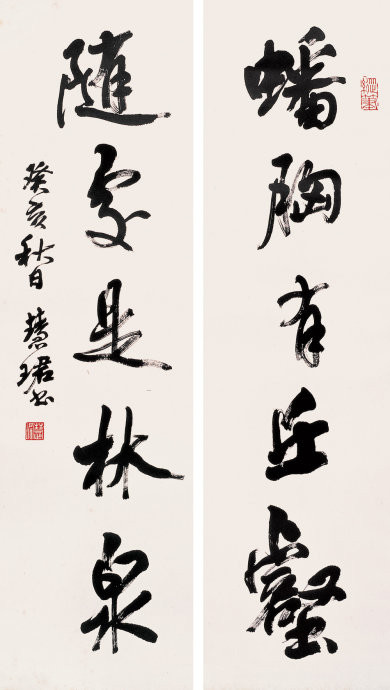 蟠胸有丘壑
随处是林泉
癸亥秋日
慧珺书